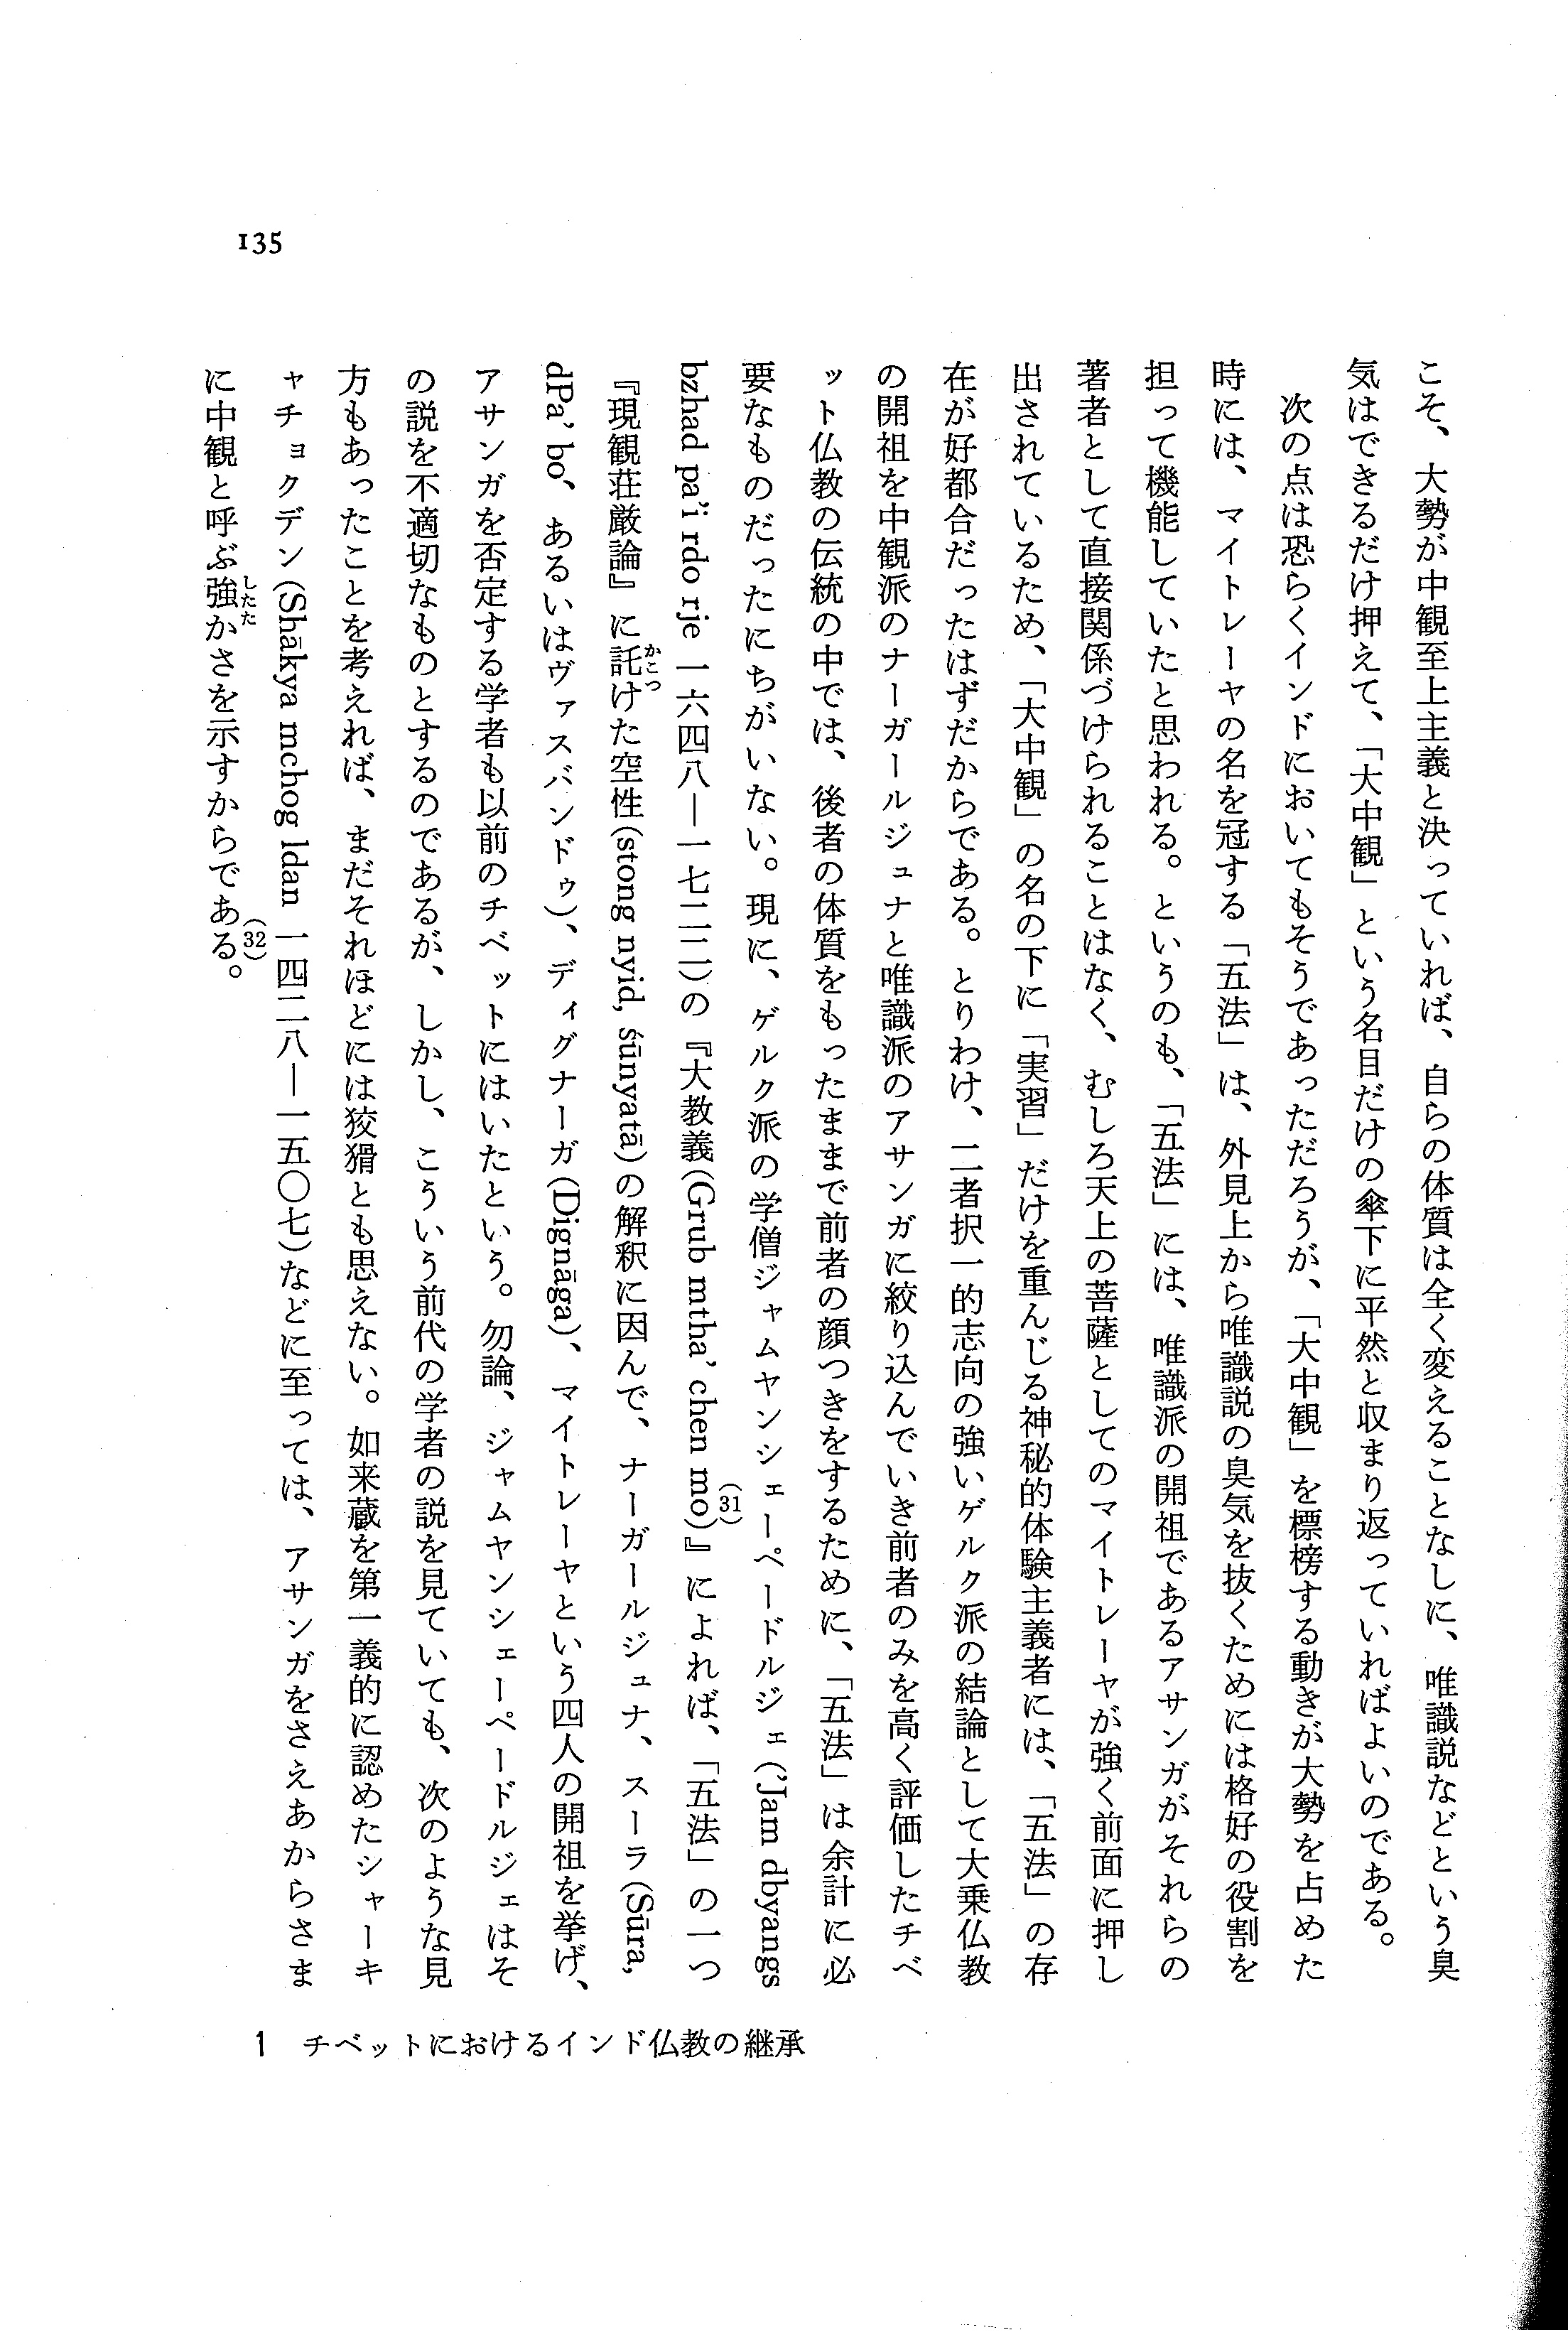 こそ、大勢が中観至上主義と決っていれば、自らの体質は全く変えることなしに、唯識説などという臭
気はできるだけ押えて、「大中観」という名目だけの傘下に平然と収まり返っていればよいのである。
次の点は恐らくインドにおいてもそうであっただろうが、「大中観」を標榜する動きが大勢を占めた
時には、マイトレーヤの名を冠する「五法」は、外見上から唯識説の臭気を抜くためには格好の役割を
担って機能していたと思われる。というのも、「五法」には、唯識派の開祖であるアサンガがそれらの
著者として直接関係づけられることはなく、むしろ天上の菩薩としてのマイトレーヤが強く前面に押し
出されているため、「大中観」の名の下に「実習」だけを重んじる神秘的体験主義者には、「五法」の存
在が好都合だったはずだからである。とりわけ、二者択一的志向の強いゲルク派の結論として大乗仏教
の開祖を中観派のナーガールジュナと唯識派のアサンガに絞り込んでいき前者のみを高く評価したチベ
ット仏教の伝統の中では、後者の体質をもったままで前者の顔つきをするために、「五法」は余計に必
要なものだったにちがいない。現に、ゲルク派の学僧ジャムヤンシェーペードルジェ('Jam dbyangs
bzhad pa'i rdo rje 一六四八—一七二二)の『大教義(Grub mtha' chen mo)(31)』によれば、「五法」の一つ
『現観荘厳論』に託(かこつ)けた空性(stong nyid, śūnyatā)の解釈に因んで、ナーガールジュナ、スーラ(Sūra,
dPa' bo、あるいはヴァスバンドゥ)、ディグナーガ(Dignāga)、マイトレーヤという四人の開祖を挙げ、
アサンガを否定する学者も以前のチベットにはいたという。勿論、ジャムヤンシェーペードルジェはそ
の説を不適切なものとするのであるが、しかし、こういう前代の学者の説を見ていても、次のような見
方もあったことを考えれば、まだそれほどには狡猾とも思えない。如来蔵を第一義的に認めたシャーキ
ャチョクデン(Shākya mchog ldan 一四二八—一五〇七)などに至っては、アサンガをさえあからさま
に中観と呼ぶ強(したた)かさを示すからである(32)。
1 チベットにおけるインド仏教の継承
135